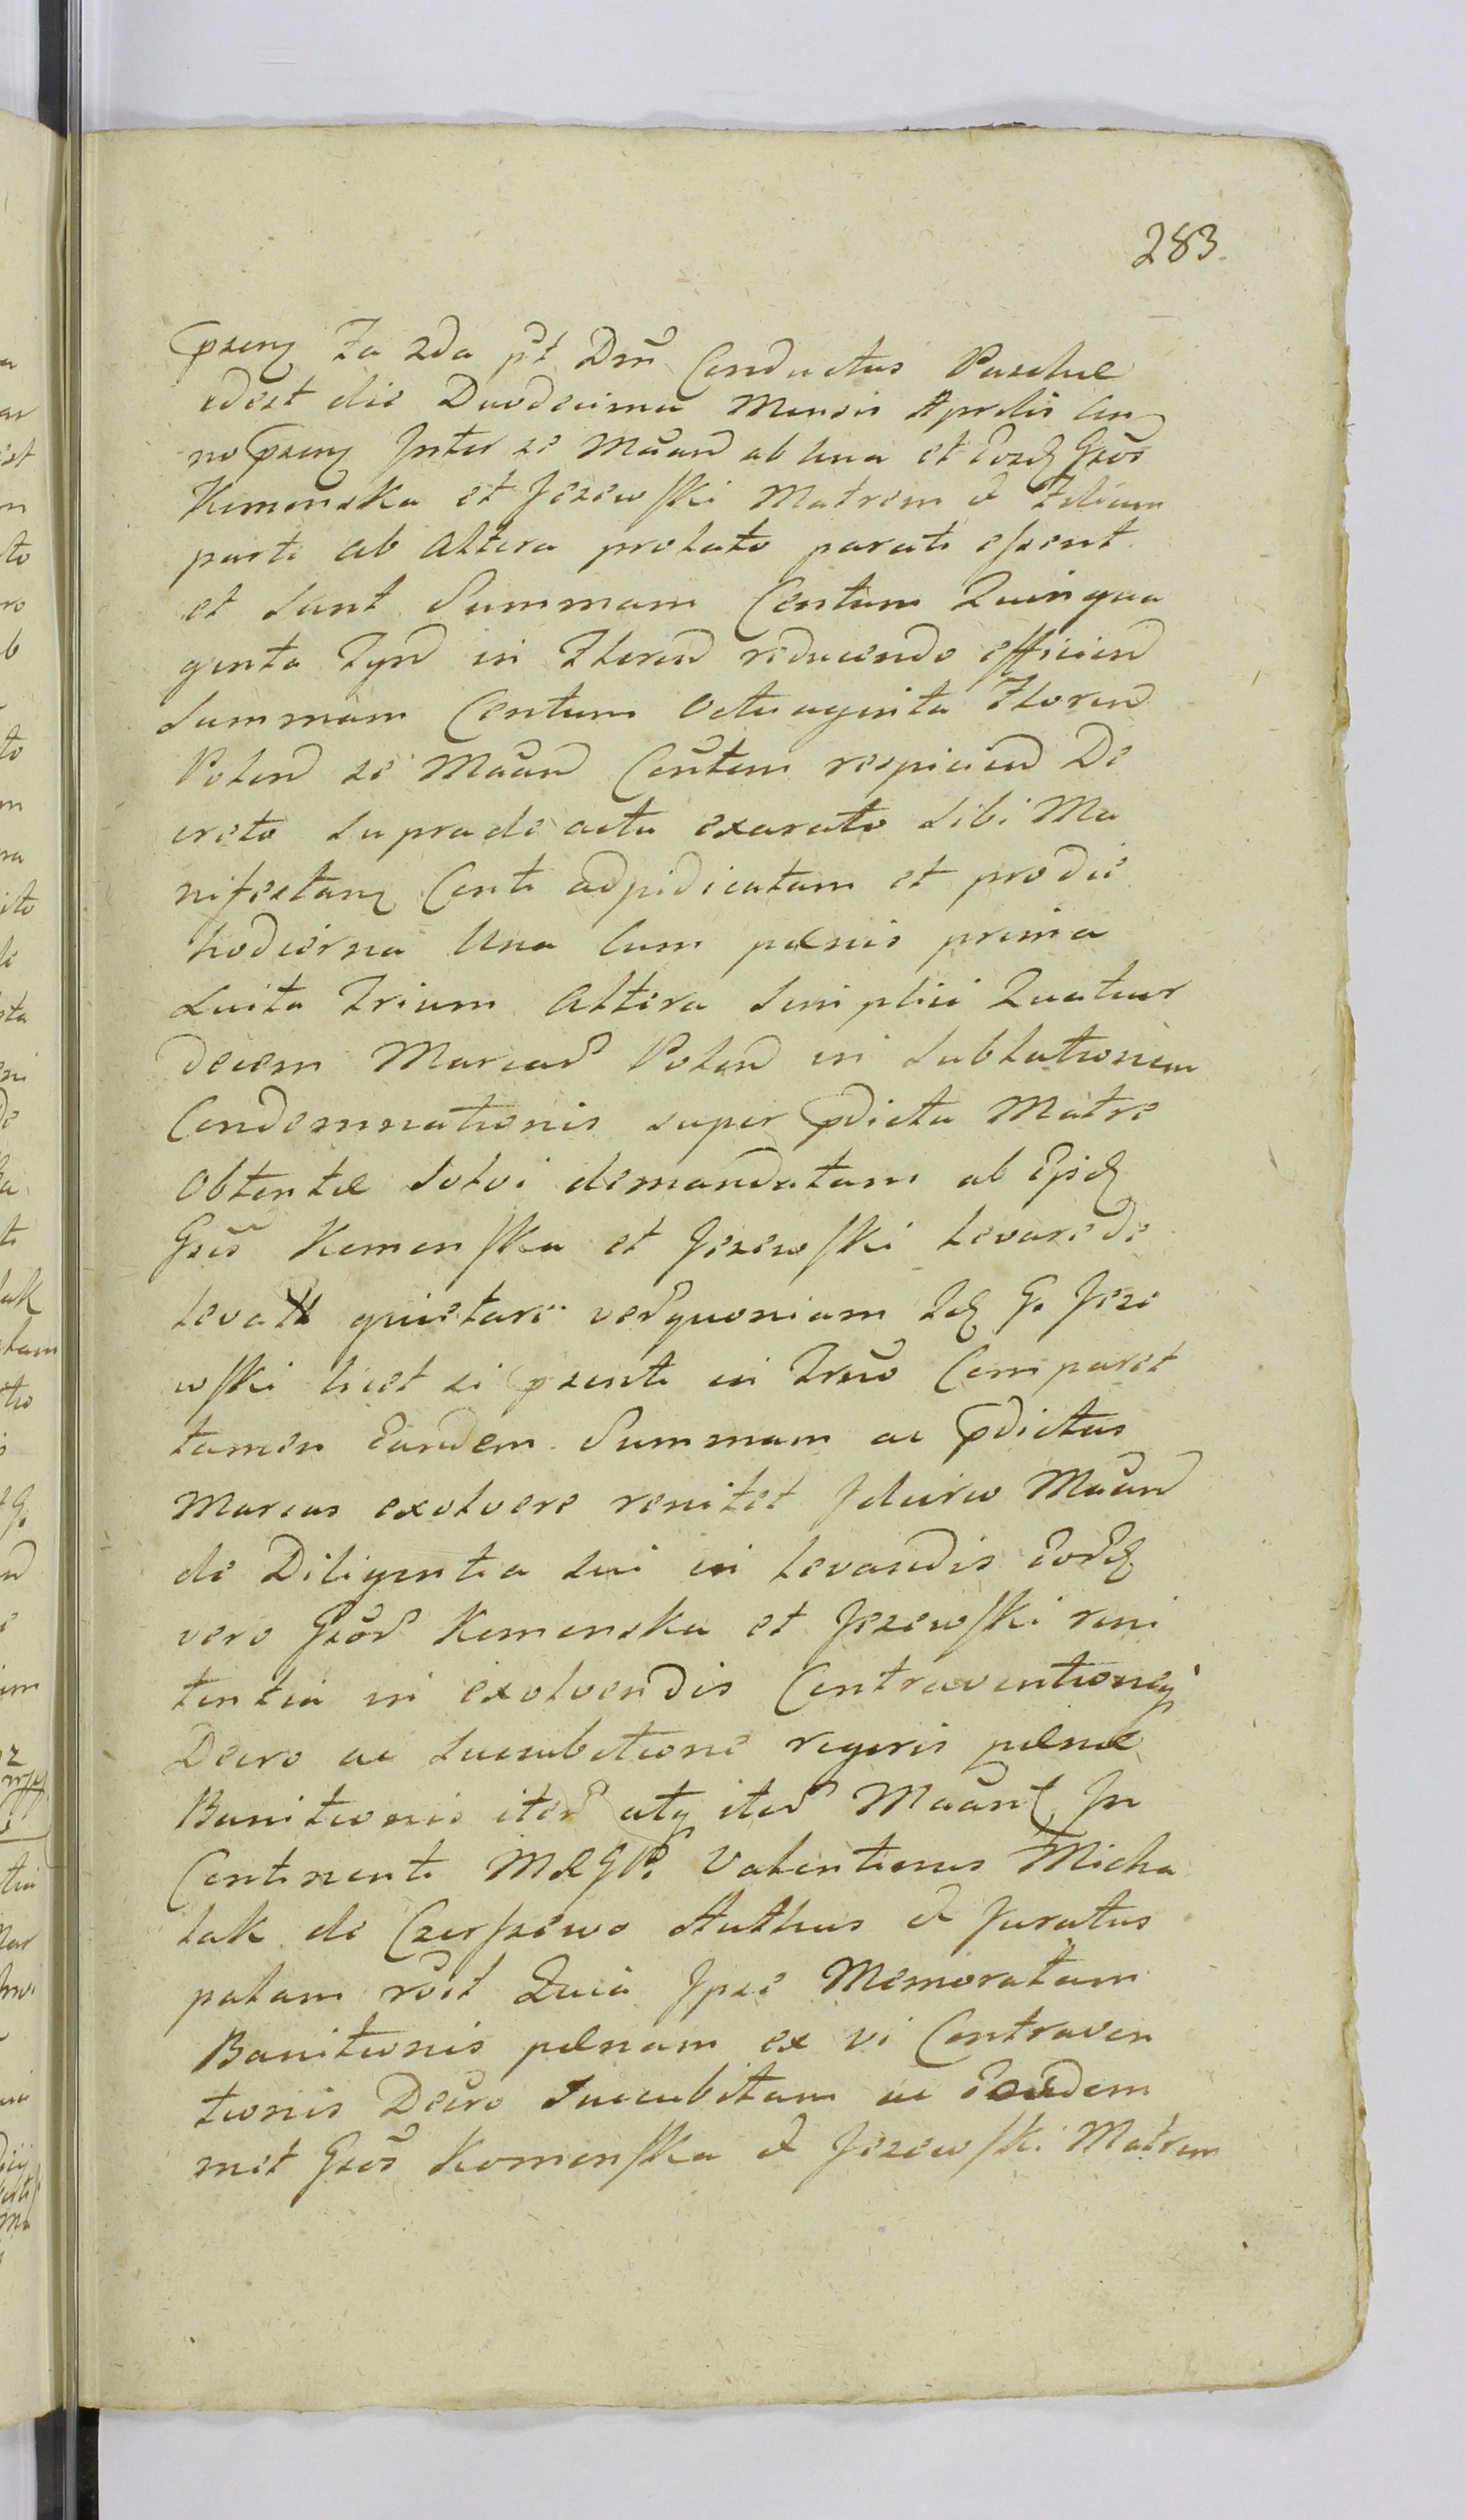 283.
pzenz Fa 2da pt Dnī Conductus Paschæ
idest die Duodecima Mensis Aprilis An
no pzenz Inter se Maand ab una et Eosd Gsos
Komenska et Jezewski Matrem & Filium
parte ab altera probato parati essent
et sunt Summam Centum Quinqua
ginta Tynd in Floren reducendo efficien
Summam Centum Octuaginta Floren
Polon se Maand Contem respicien De
creto supra de actu exarato sibi Ma
nifestanz Conti adjudicatam et pro die
hodierna Una Cum pænis primia
Luita Trium Altera Simplici Quatuor
decem Marcar Polon in Sublationem
Condemnationis super pdicta Matre
Obtentæ Solvi demandatam ab Ejsd
Gsis Komenska et Jezewski Levare de
leva quietare verquoniam Id G. Jeze
wski licet si pzente in Trno Comparet
tamen Eandem Summam ac pdictas
Marcas exolvere renitet Idcirco Maand
de Diligentia sui in Levandis Eord
vero Gsor Komenska et Jezewski reni
tentia in exolvendis Contraventioney
Decro ac Succubitione regeris pænæ
Banitionis iter atq iter Maant In
Continenti M&GR. Valentinus Micha
lak de Czerszewo Authus & Juratus
palam roit Quia Ipse Memoratam
Banitionis pænam ex vi Contraven
tionis Decro Succubitam ac Eosdem
met Gsos Komenska & Jezewski Matrem